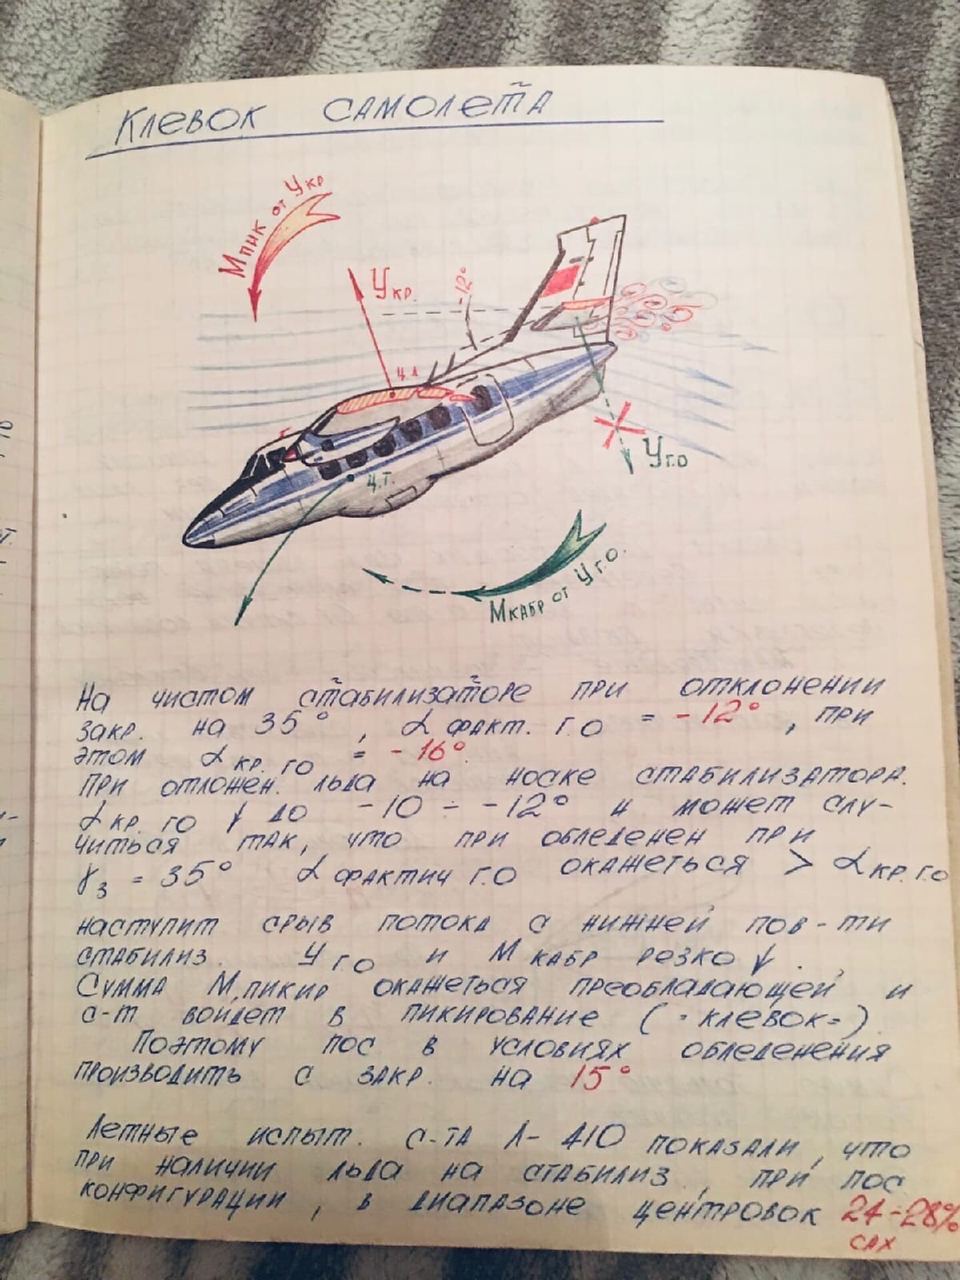 Клевок самолета
Мпик от Yкр
Yкр.
-12°
ц.д
ц.т.
Yг.о
Мкабр от Yг.о.
На чистом стабилизаторе при отклонении
закр. на 35°, α факт. г.о = -12°, при
этом α кр. го = -16°.
При отложен. льда на носке стабилизатора.
α кр. го ↓ до -10 ÷ -12° и может слу-
читься так, что при обледенен при
γз = 35° α фактич г.о окажеться > α кр. г.о
наступит срыв потока с нижней пов-ти
стабилиз. Y го и М кабр резко ↓.
Сумма М.пикир окажеться преобладающей и
с-т войдет в пикирование (=клевок=)
Поэтому пос в условиях обледенения
производить с закр. на 15°
Летные испыт. с-та Л-410 показали, что
при наличии льда на стабилиз., при пос
конфигурации, в диапазоне центровок 24-28%
сах